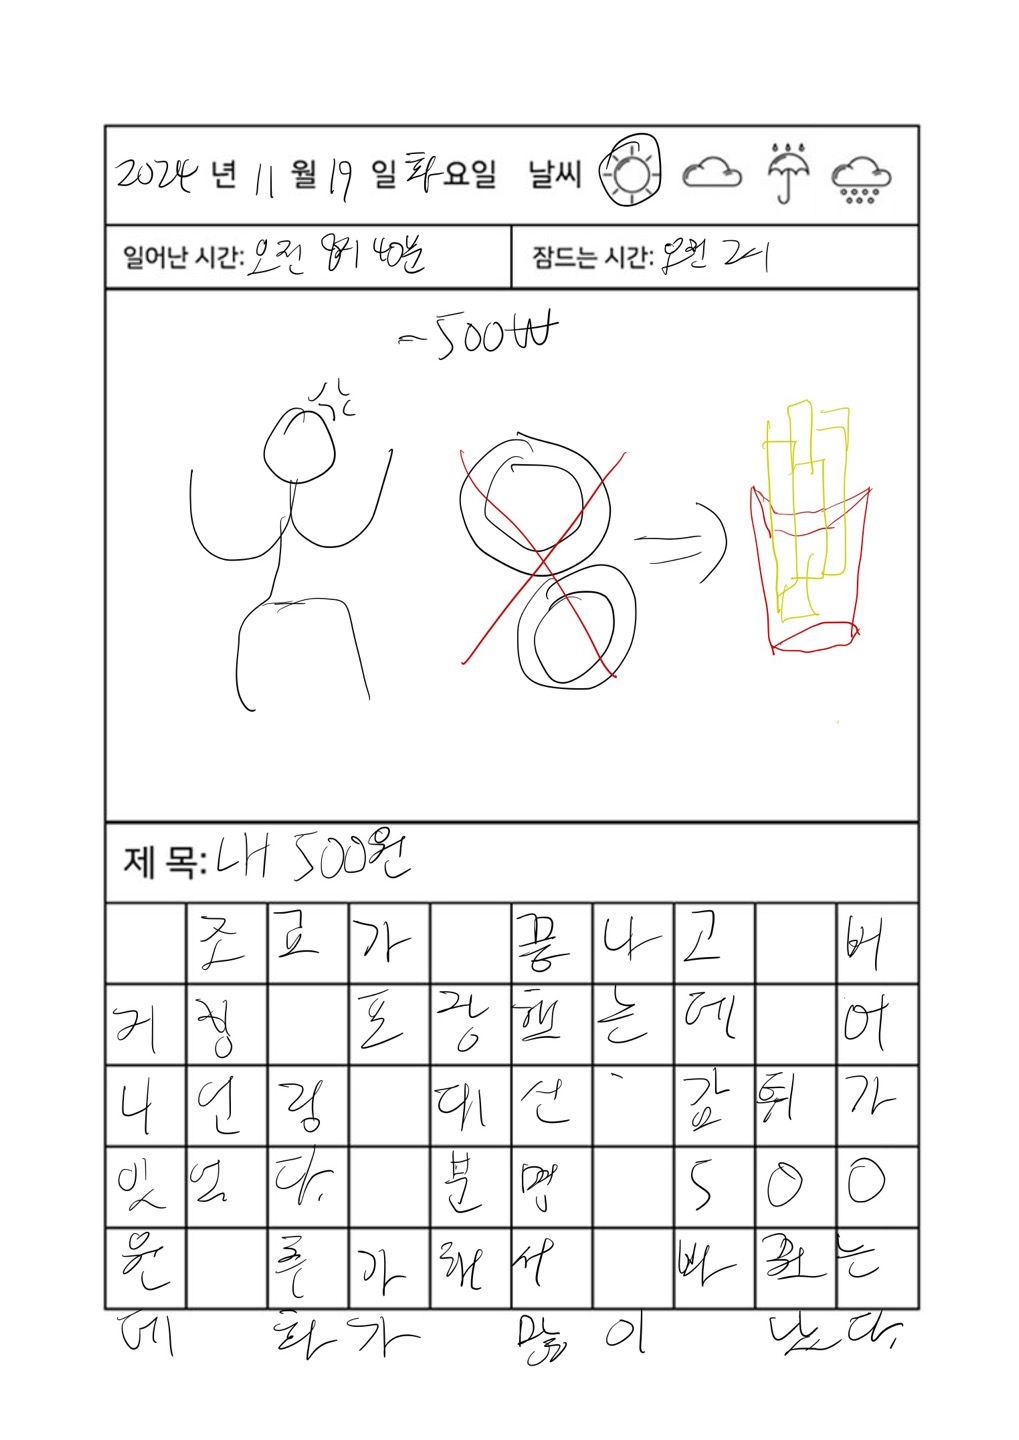 2024 년 11 월 19 일 화요일 날씨
일어난 시간: 오전 8시 40분 잠드는 시간: 오전 2시
-500₩
제 목: 내 500원
조료가 끝나고 버
거킹 포장했는데 어
니언링 대신 감튀가
있었다. 분명 500
원 추가해서 바꿨는
데 화가 많이 났다.